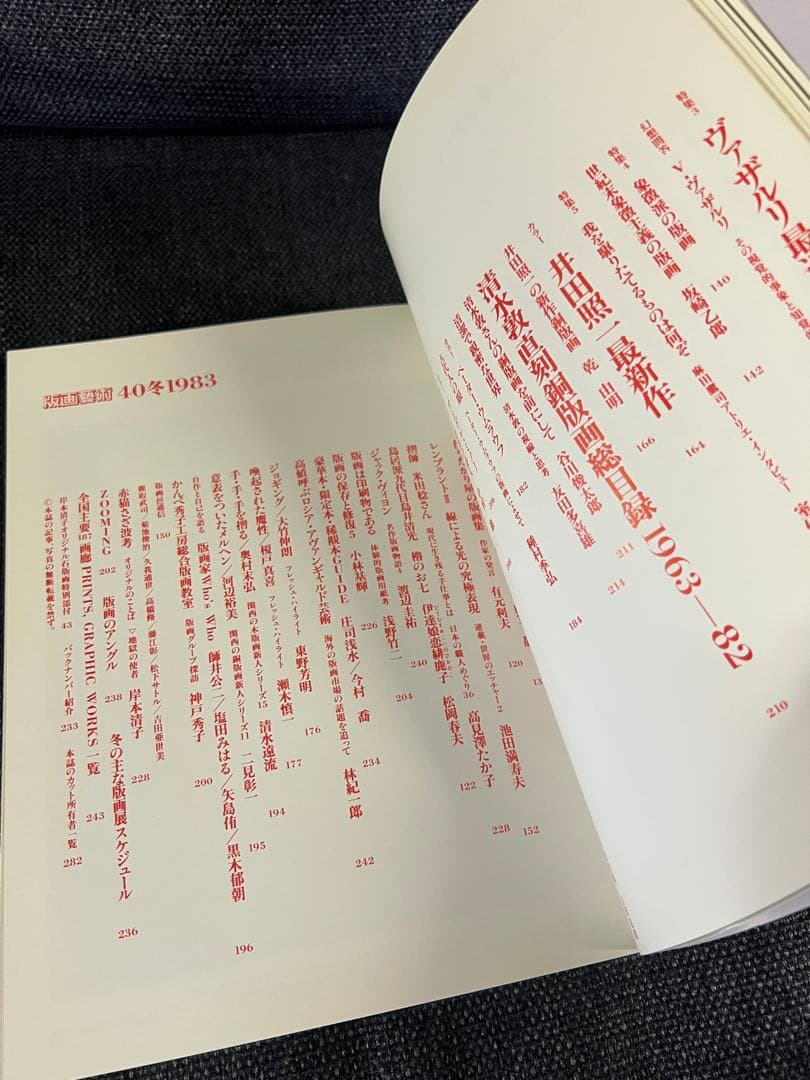 ヴァザルリ最
特集3
V・ヴァザルリ
その視覚的事象と知覚
142
幻想問答
象徴派の版画
坂崎乙郎
140
特集4
世紀末象徴主義の版画
我を駆りたてるものは何ぞ
麻田鷹司アトリエ・インタビュー
164
特集5
井田照一最新作
166
カラー
井田照一の新作銅版画
乾 由明
清水敦直刻銅版画総目録 1963—82
210
清水敦さんの銅版画を前にして
谷川俊太郎
211
清澄で親密な世界
清水敦の視線と思考
友田多喜雄
214
182
種村季弘
184
版画藝術 40冬1983
版画集
作家の発言
有元利夫
120
池田満寿夫
152
レンブラントII 線による光の究極表現
連載・世界のエッチャー2
高見澤たか子
228
摺師 米田稔さん
現代に生き残る手仕事とは
日本の職人めぐり36
松岡春夫
122
鳥居派九代目鳥井清光
櫓のお七
伊達娘恋緋鹿子
240
ジャック・ヴィヨン
名作版画物語
渡辺圭祐
204
版画は印刷物である
体験的版画用紙考
浅野竹二
226
版画の保存と修復5
小林基輝
豪華本・限定本・稀覯本GUIDE
庄司浅水/今村 喬
234
高値呼ぶロシア・アヴァンギャルド芸術
海外の版画市場の話題を追って
林紀一郎
242
ジョギング/大竹伸朗
フレッシュ・ハイライト
東野芳明
176
喚起された魔性/榎戸真喜
フレッシュ・ハイライト
瀬木慎一
177
手・手・手を摺る/奥村末弘
関西の木版画新人シリーズ15
清水遠流
194
意表をついたメルヘン/河辺裕美
関西の銅版画新人シリーズ11
二見彰一
195
自作と自己を語る
版画家Who's Who
師井公二/塩田みはる/矢島侑/黒木郁朝
196
かんべ秀子工房総合版画教室
版画グループ探訪
神戸秀子
200
版画邑通信
鹿取武司/菊池俊治/久我通世/高橋修/藤江彰/松下サトル/吉田亜世美
150
赤猫さざ波考
オリジナルのことば ▽地獄の使者
岸本清子
228
ZOOMING
202
版画のアングル
238
冬の主な版画展スケジュール
236
全国主要187画廊 PRINTS, GRAPHIC WORKS 一覧
243
岸本清子オリジナル石版画特別添付
43
バックナンバー紹介
233
本誌のカット所有者一覧
282
©本誌の記事、写真の無断転載を禁ず。